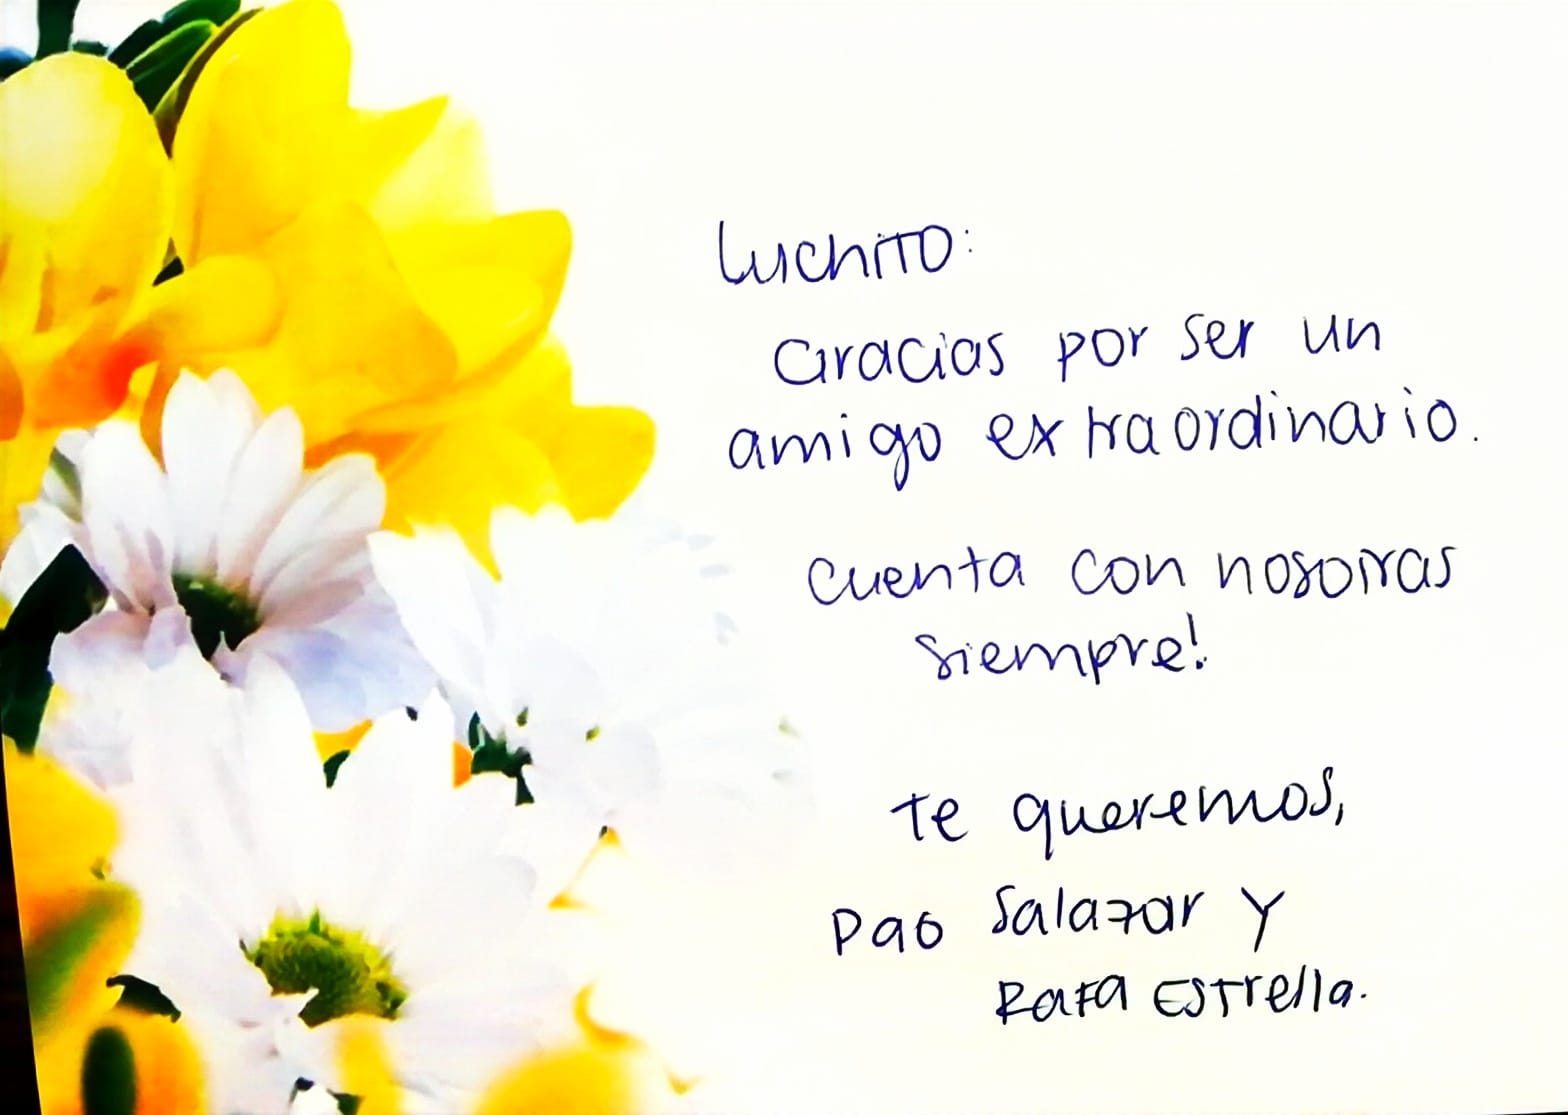 Luchito:
Gracias por ser un
amigo extraordinario.
cuenta con nosotras
siempre!
te queremos,
Pao Salazar y
Rafa Estrella.